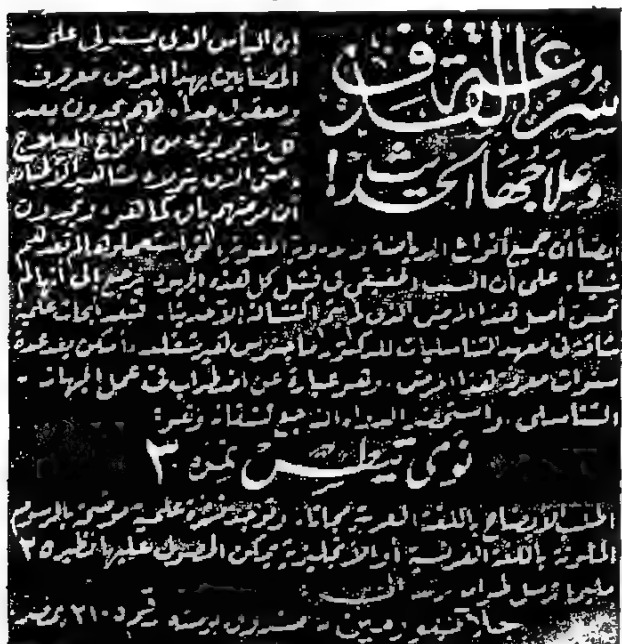 سر عـلة القذف
وعلاجها الحديث!
إن اليأس الذى يستولى على
المصابين بهذا المرض معروف
ومعقول جداً. فهم يجدون بعد
كل ما يجربونه من أنواع العلاج
أن مرضهم باق كما هو، ويجدون
ايضاً أن جميع أنواع الرياضة والمقويات التى استعملوها لم تفدهم
شيئاً. على أن السبب الحقيقى فى فشل كل هذه الجهود يرجع إلى أنها لم
تمس أصل هذا المرض الذى لم يتم اكتشافه إلا حديثاً. فبعد أبحاث علمية
شاقة فى معهد التناسليات للدكتور ماجنوس هيرشفلد أمكن بعد عدة
سنوات معرفة هذا المرض. وهو عبارة عن اضطراب فى عمل الجهاز
التناسلى. واستحضر الدواء الناجع لشفائه وهو:
نمرة ٣
اطلب الايضاح باللغة العربية مجاناً. وتوجد نشرة علمية موضحة بالرسوم
الملونة باللغة الفرنسية أو الانجليزية يمكن الحصول عليها نظير ٢٥
مليما ترسل طوابع بوستة الى:
صندوق بوستة نمرة ٢١٠٥ بمصر